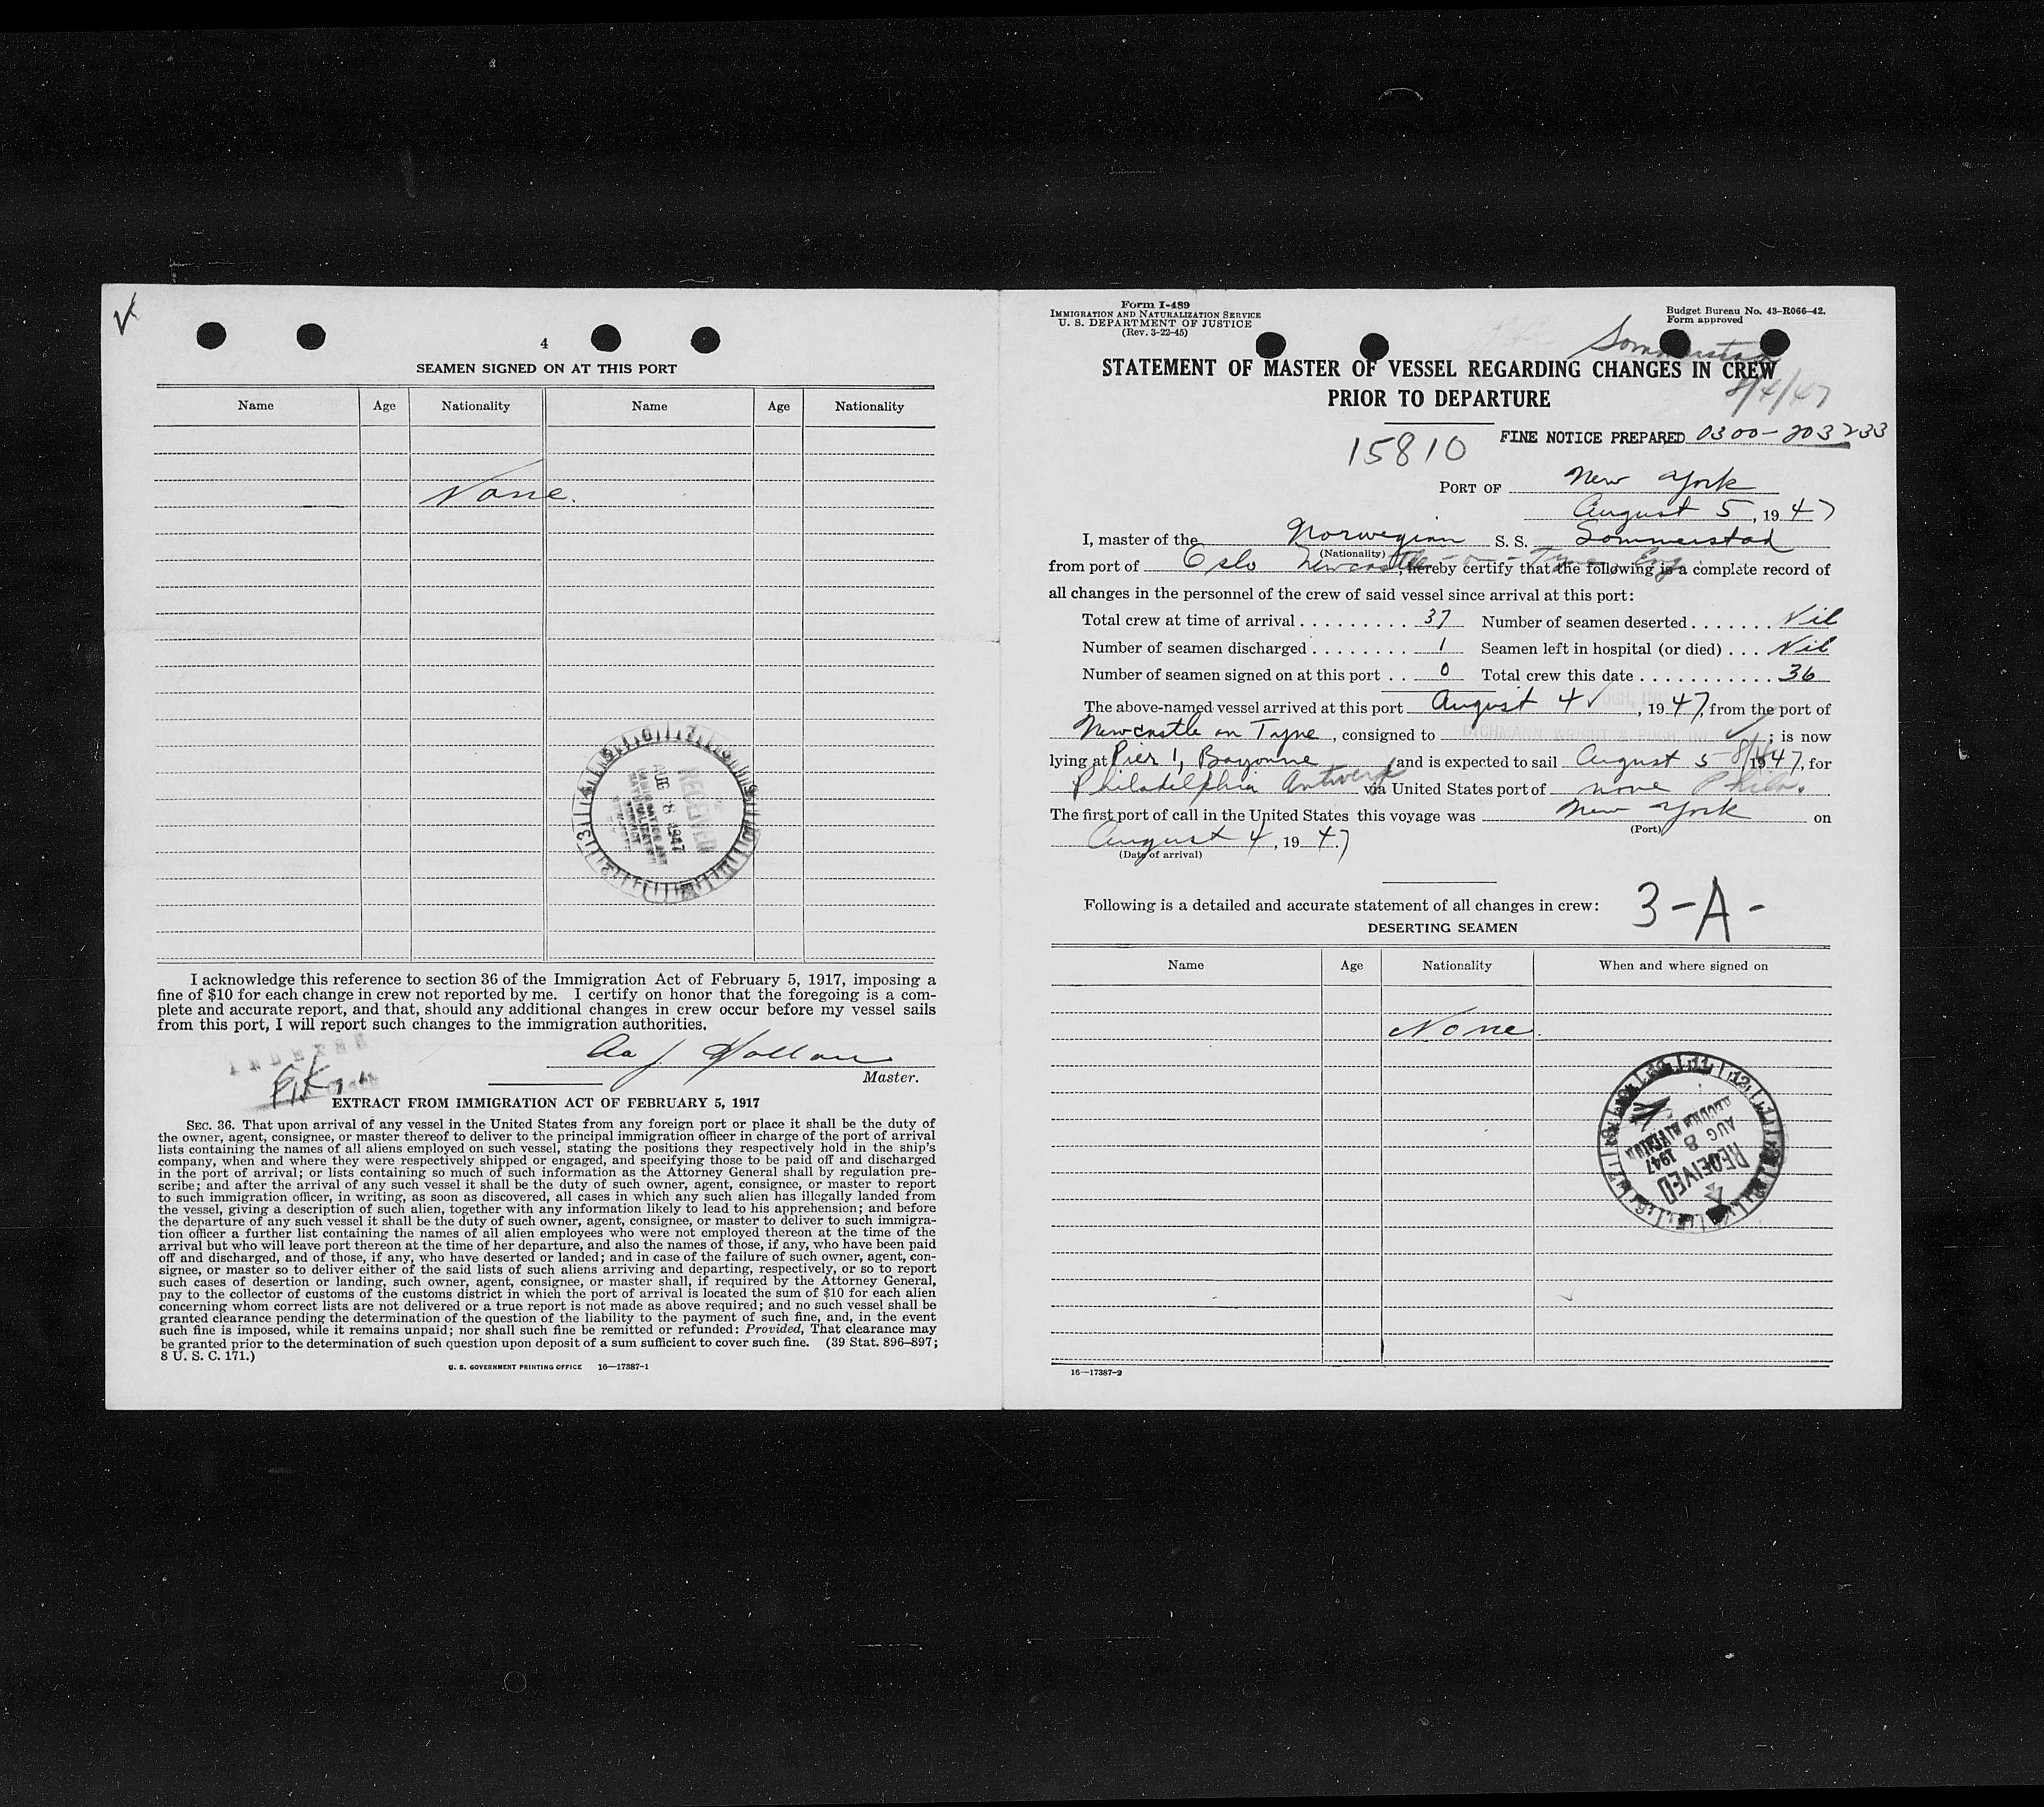 4
SEAMEN SIGNED ON AT THIS PORT
Name Age Nationality Name Age Nationality
None.
RECEIVED
AUG 8 1947
IMMIGRATION AND
NATURALIZATION
I acknowledge this reference to section 36 of the Immigration Act of February 5, 1917, imposing a
fine of $10 for each change in crew not reported by me. I certify on honor that the foregoing is a com-
plete and accurate report, and that, should any additional changes in crew occur before my vessel sails
from this port, I will report such changes to the immigration authorities.
INDEXED
Aa J.
Master.
EXTRACT FROM IMMIGRATION ACT OF FEBRUARY 5, 1917
SEC. 36. That upon arrival of any vessel in the United States from any foreign port or place it shall be the duty of
the owner, agent, consignee, or master thereof to deliver to the principal immigration officer in charge of the port of arrival
lists containing the names of all aliens employed on such vessel, stating the positions they respectively hold in the ship's
company, when and where they were respectively shipped or engaged, and specifying those to be paid off and discharged
in the port of arrival; or lists containing so much of such information as the Attorney General shall by regulation pre-
scribe; and after the arrival of any such vessel it shall be the duty of such owner, agent, consignee, or master to report
to such immigration officer, in writing, as soon as discovered, all cases in which any such alien has illegally landed from
the vessel, giving a description of such alien, together with any information likely to lead to his apprehension; and before
the departure of any such vessel it shall be the duty of such owner, agent, consignee, or master to deliver to such immigra-
tion officer a further list containing the names of all alien employees who were not employed thereon at the time of the
arrival but who will leave port thereon at the time of her departure, and also the names of those, if any, who have been paid
off and discharged, and of those, if any, who have deserted or landed; and in case of the failure of such owner, agent, con-
signee, or master so to deliver either of the said lists of such aliens arriving and departing, respectively, or so to report
such cases of desertion or landing, such owner, agent, consignee, or master shall, if required by the Attorney General,
pay to the collector of customs of the customs district in which the port of arrival is located the sum of $10 for each alien
concerning whom correct lists are not delivered or a true report is not made as above required; and no such vessel shall be
granted clearance pending the determination of the question of the liability to the payment of such fine, and, in the event
such fine is imposed, while it remains unpaid; nor shall such fine be remitted or refunded: Provided, That clearance may
be granted prior to the determination of such question upon deposit of a sum sufficient to cover such fine. (39 Stat. 896–897;
8 U. S. C. 171.)
U. S. GOVERNMENT PRINTING OFFICE 16—17387-1
Form I-489
IMMIGRATION AND NATURALIZATION SERVICE
U. S. DEPARTMENT OF JUSTICE
(Rev. 3-22-45)
Budget Bureau No. 43-R066-42.
Form approved
Sommerstad
STATEMENT OF MASTER OF VESSEL REGARDING CHANGES IN CREW
PRIOR TO DEPARTURE
8/4/47
FINE NOTICE PREPARED 0300-203233
15810
PORT OF New York
August 5, 1947
I, master of the Norwegian S. S. Sommerstad
(Nationality)
from port of Oslo Newcastle-on-Tyne Eng, hereby certify that the following is a complete record of
all changes in the personnel of the crew of said vessel since arrival at this port:
Total crew at time of arrival . . . . . . . . . 37 Number of seamen deserted . . . . . . . Nil
Number of seamen discharged . . . . . . . . 1 Seamen left in hospital (or died) . . . Nil
Number of seamen signed on at this port . . 0 Total crew this date . . . . . . . . . . . 36
The above-named vessel arrived at this port August 4 ✓, 1947, from the port of
Newcastle on Tyne, consigned to ; is now
lying at Pier 1, Bayonne and is expected to sail August 5 1947, for
Philadelphia Antwerp via United States port of none Phila.
The first port of call in the United States this voyage was New York on
(Port)
August 4, 1947
(Date of arrival)
Following is a detailed and accurate statement of all changes in crew: 3-A-
DESERTING SEAMEN
Name Age Nationality When and where signed on
None.
RECEIVED
AUG 8 1947
RECORDS DIVISION
16—17387-2